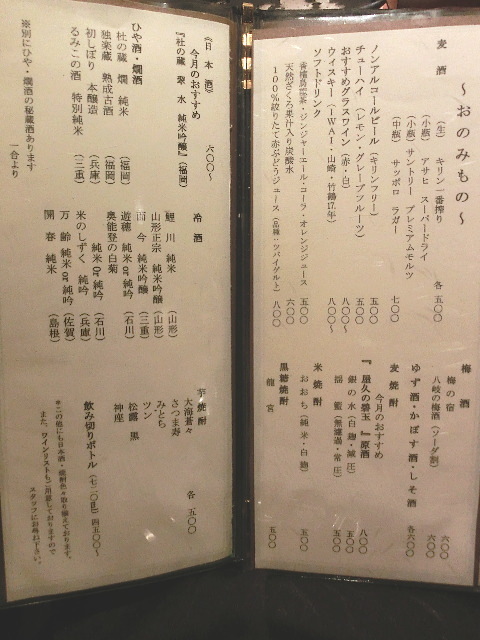 ～おのみもの～
麦酒
(生) キリン一番搾り 各 五〇〇
(小瓶) アサヒ スーパードライ
(小瓶) サントリー プレミアムモルツ
(中瓶) サッポロ ラガー 七〇〇
ノンアルコールビール (キリンフリー) 五〇〇
チューハイ (レモン・グレープフルーツ) 五〇〇
おすすめグラスワイン (赤・白) 八〇〇～
ウィスキー (IWAI・山崎・竹鶴17年) 八〇〇～
ソフトドリンク
烏龍茶・ジンジャーエール・コーラ・オレンジジュース 五〇〇
天然ざくろ果汁入り炭酸水 六〇〇
100%絞りたて赤ぶどうジュース (品種:ツバイゲルト) 八〇〇
梅酒
梅の宿 六〇〇
八岐の梅酒 (ソーダ割) 六〇〇
ゆず酒・かぼす酒・しそ酒 各六〇〇
麦焼酎
今月のおすすめ
『屋久の碧玉』原酒 八〇〇
銀の水 (白麹・減圧) 五〇〇
揺籃 (無濾過・常圧) 五〇〇
米焼酎
おおち (純米・白麹) 五〇〇
黒糖焼酎
龍宮 五〇〇
《日本酒》
今月のおすすめ 六〇〇～
『杜の蔵 翠水 純米吟醸』(福岡)
ひや酒・燗酒
杜の蔵 燗 純米 (福岡)
独楽蔵 熟成古酒 (福岡)
初しぼり 本醸造 (兵庫)
るみこの酒 特別純米 (三重)
※別にひや・燗酒の秘蔵酒あります
一合より
冷酒
鯉川 純米 (山形)
山形正宗 純米吟醸 (山形)
而今 純米吟醸 (三重)
遊穂 純米or純吟 (石川)
奥能登の白菊 純米or純吟 (石川)
米のしずく 純吟 (兵庫)
万齢 純米or純吟 (佐賀)
開春 純米 (島根)
芋焼酎
大海蒼々 各 五〇〇
さつま寿
みとち
ツン
松露 黒
神座
飲み切りボトル (七二〇ml) 四五〇〇～
※この他にも日本酒・焼酎色々取り揃えております。
また、ワインリストもご用意しておりますので
スタッフにお尋ね下さい。